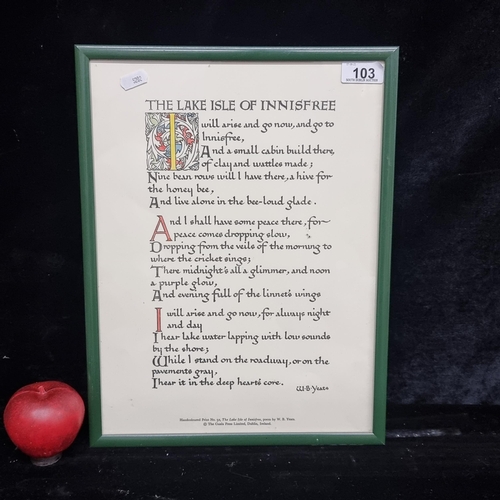 103
THE LAKE ISLE OF INNISFREE
I will arise and go now, and go to
Innisfree,
And a small cabin build there,
of clay and wattles made;
Nine bean rows will I have there, a hive for
the honey bee,
And live alone in the bee-loud glade.
And I shall have some peace there, for
peace comes dropping slow,
Dropping from the veils of the morning to
where the cricket sings;
There midnight's all a glimmer, and noon
a purple glow,
And evening full of the linnet's wings
I will arise and go now, for always night
and day
I hear lake water lapping with low sounds
by the shore;
While I stand on the roadway, or on the
pavements gray,
I hear it in the deep heart's core.
W·B·Yeats
The Lake Isle of Innisfree, poem by W. B. Yeats.
© The Cuala Press Limited, Dublin, Ireland.